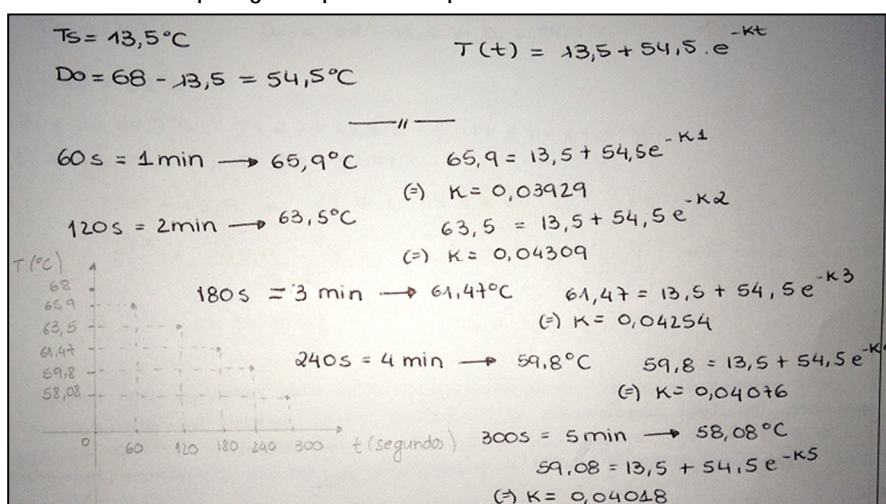 Ts = 13,5°C
T(t) = 13,5 + 54,5 . e^-Kt
Do = 68 - 13,5 = 54,5°C
60s = 1min → 65,9°C
65,9 = 13,5 + 54,5e^-K1
(=) K = 0,03929
120s = 2min → 63,5°C
63,5 = 13,5 + 54,5 e^-K2
(=) K = 0,04309
180s = 3 min → 61,47°C
61,47 = 13,5 + 54,5 e^-K3
(=) K = 0,04254
240s = 4 min → 59,8°C
59,8 = 13,5 + 54,5 e^-K
(=) K = 0,04076
300s = 5min → 58,08°C
59,08 = 13,5 + 54,5 e^-K5
(=) K = 0,04018
T (°C)
68
65,9
63,5
61,47
59,8
58,08
0 60 120 180 240 300 t (segundos)